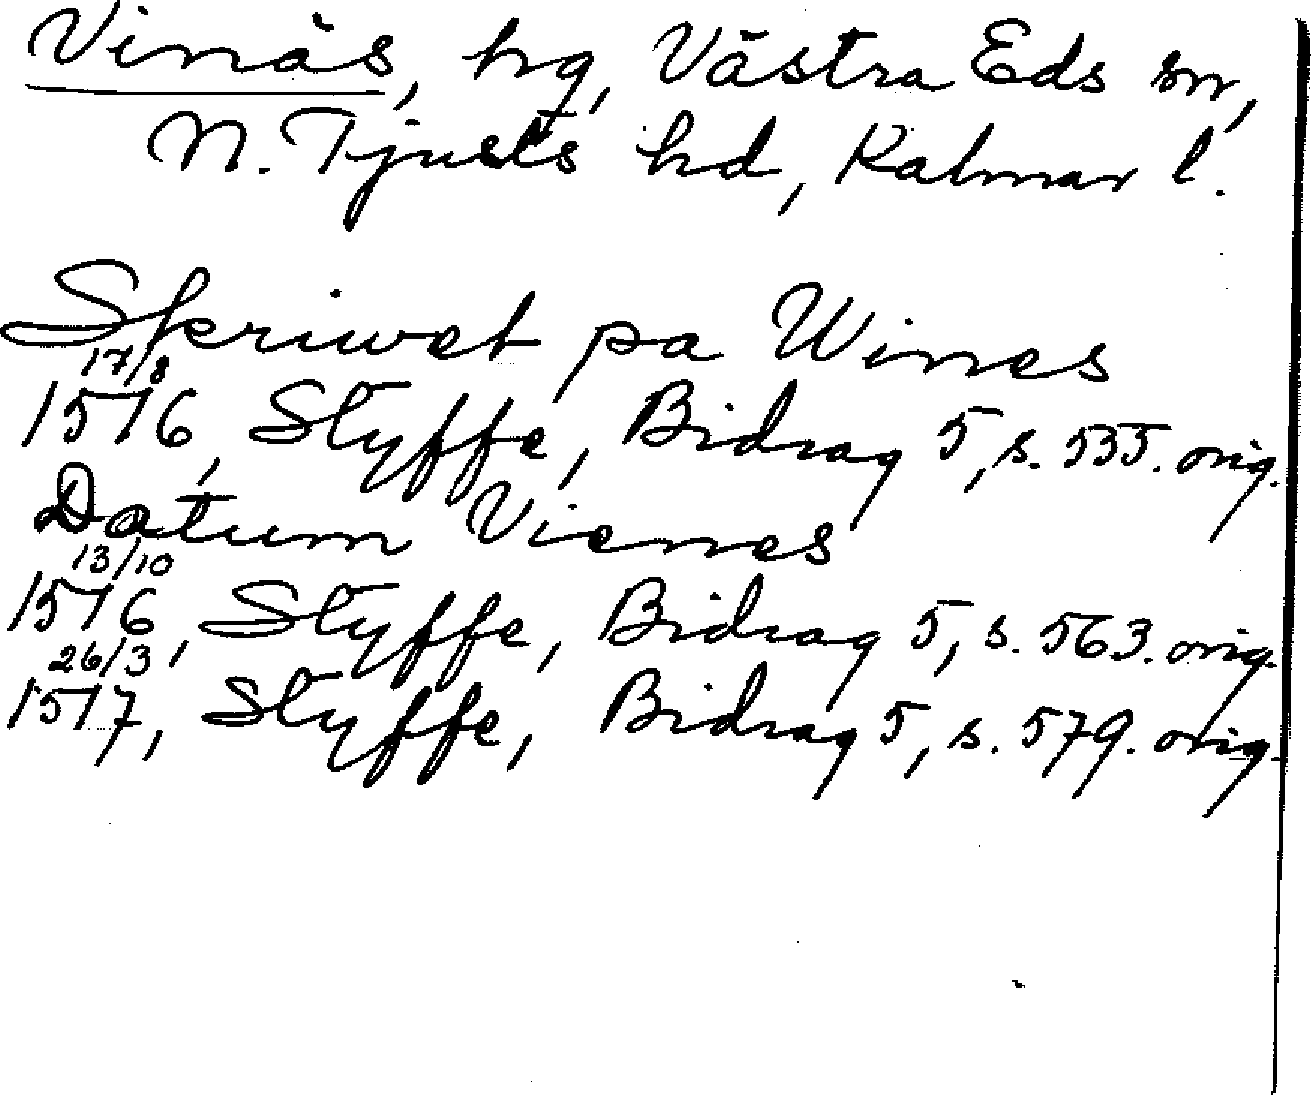 Vinäs, hg, Västra Eds sn,
N. Tjusts hd, Kalmar l.
Skriwet pa Wines
17/8
1516, Styffe, Bidrag 5, s. 535. orig.
Datum Vienes
13/10
1516, Styffe, Bidrag 5, s. 563. orig.
26/3
1517, Styffe, Bidrag 5, s. 579. orig.